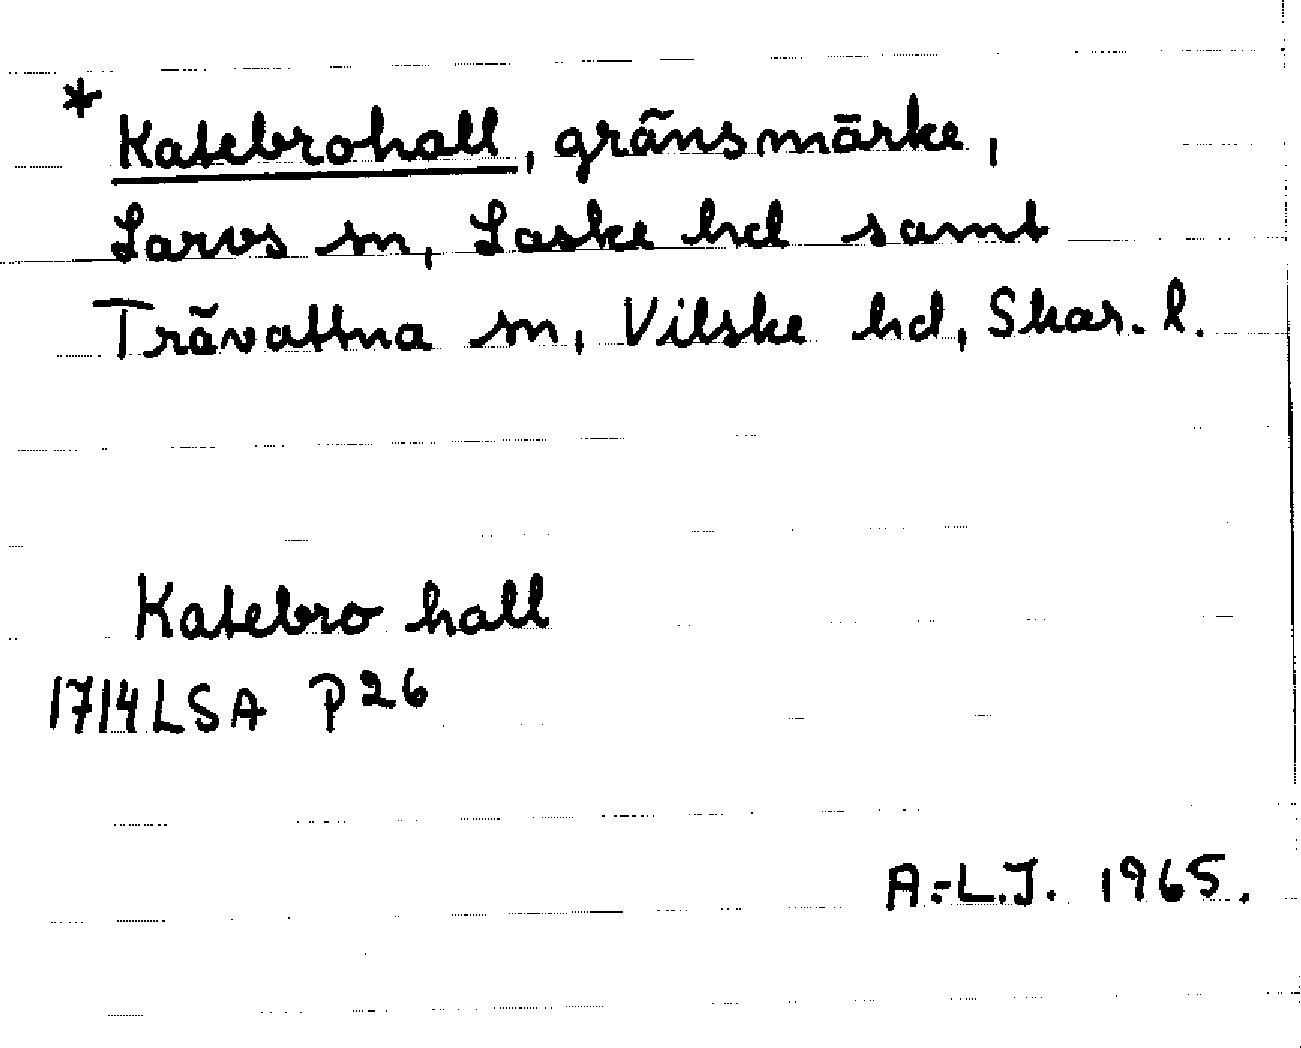 * Katebrohall, gränsmärke,
Larvs sn, Laske hd samt
Trävattna sn, Vilske hd, Skar. l.
Katebro hall
1714 LSA P 26
A.-L.J. 1965.